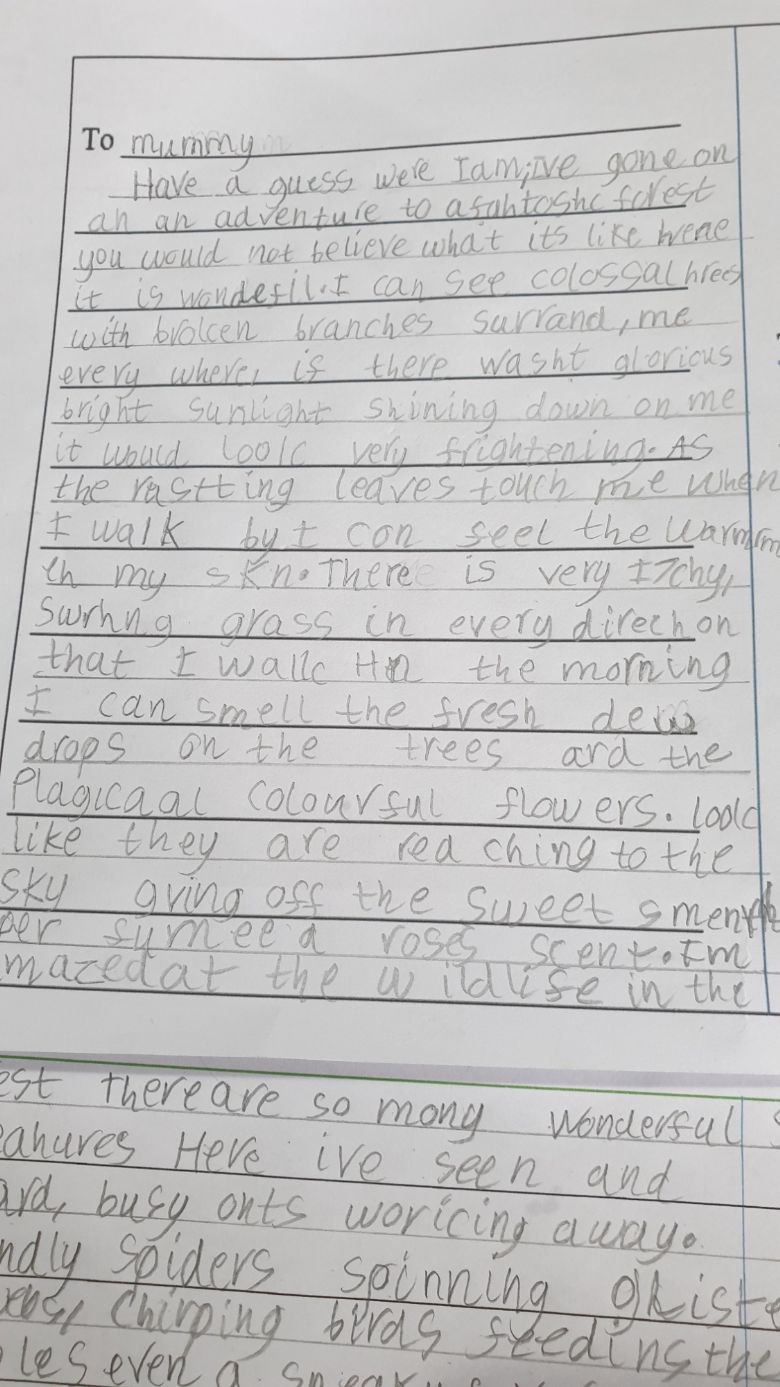 To mummy
Have a guess were I am, ive gone on
an an adventure to a forest
you would not believe what its like
it is wondefil. I can see colossal
with broken branches surrand, me
every where, if there wasnt glorious
bright sunlight shining down on me
it would look very frightening. As
the leaves touch me when
I walk by I can feel the warm
my skn. There is very
grass in every direction
that I walk the morning
I can smell the fresh dew
drops on the trees and the
colourful flowers. look
like they are reaching to the
sky gving off the sweet
roses scent. Im
mazed at the wildlife in the
est there are so many wonderful
Here ive seen and
ard, busy ants working away.
ndly spiders spinning
chirping birds feeding the
les even a